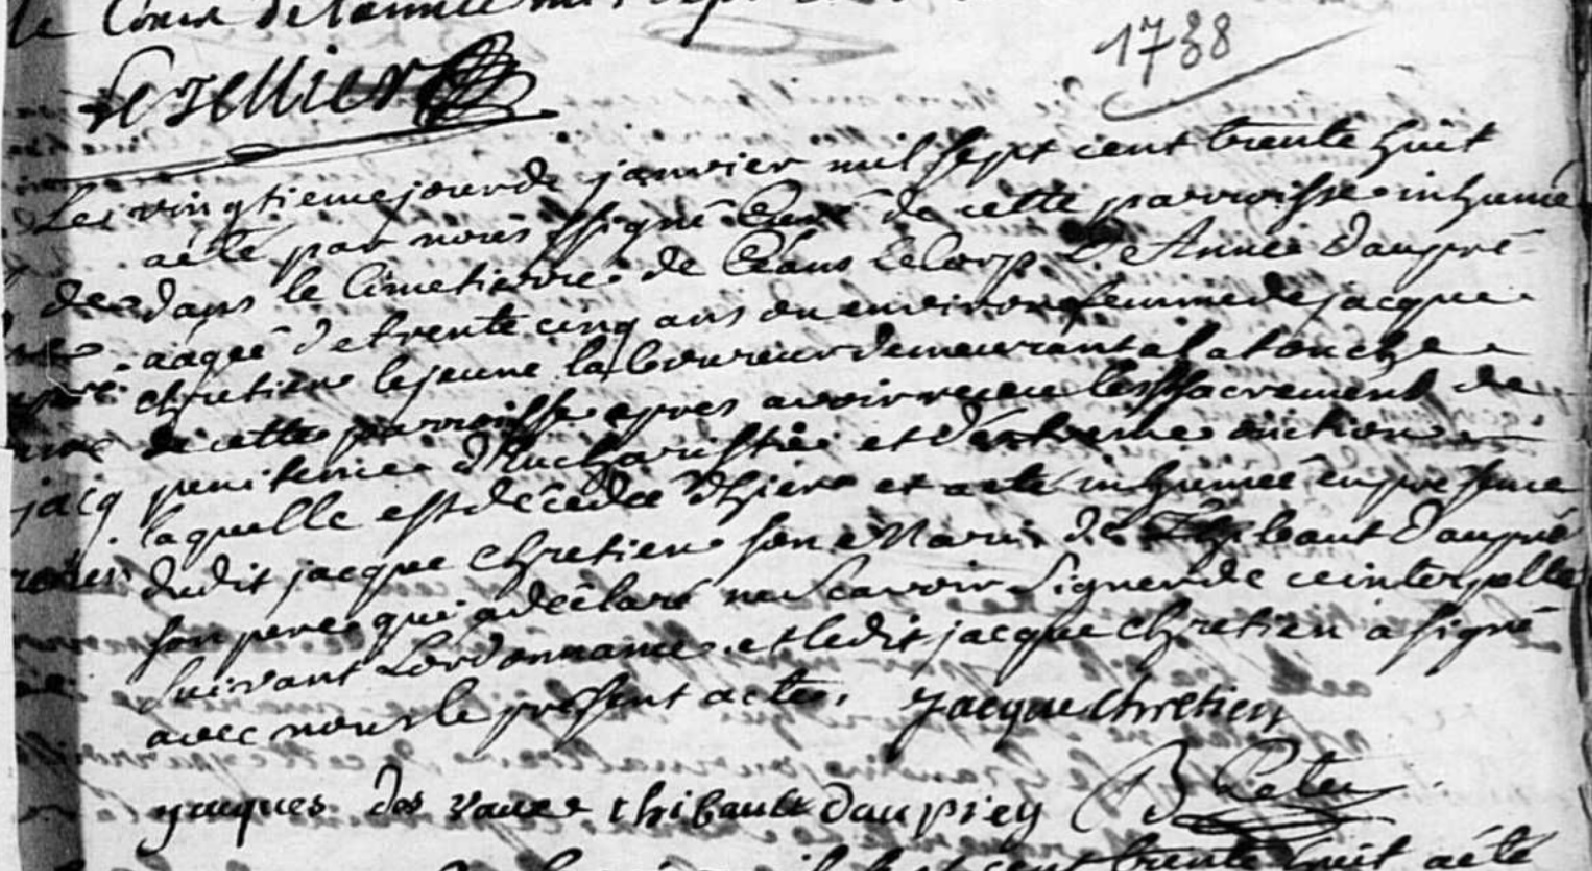 le Cours de l'année mil sept
1738
Le Tellier
Le vingtieme jour de janvier mil sept cent trente huit
a eté par nous ssigné Curé de cette parroisse inhumé
dans le Cimetierre de Céans le corp De Anne Daupré
aagée de trente cinq ans ou environ femme de jacque
chretien le jeune laboureur demeurant a la touche
de cette parroisse apres avoir receu les ssacrement de
penitence d'Eucharistie et d'extreme onction
laquelle est décédée d'hier et a eté inhumée en presence
dudit jacque chretien son Mari de Thibaut Daupré
son pere qui a déclaré ne scavoir signer de ce interpellé
suivant Lordonnance et ledit jacque chretien a signé
avec nous le present acte.
Jacque chretien
jacques des vaux thibault dauprey
cent trente huit a eté